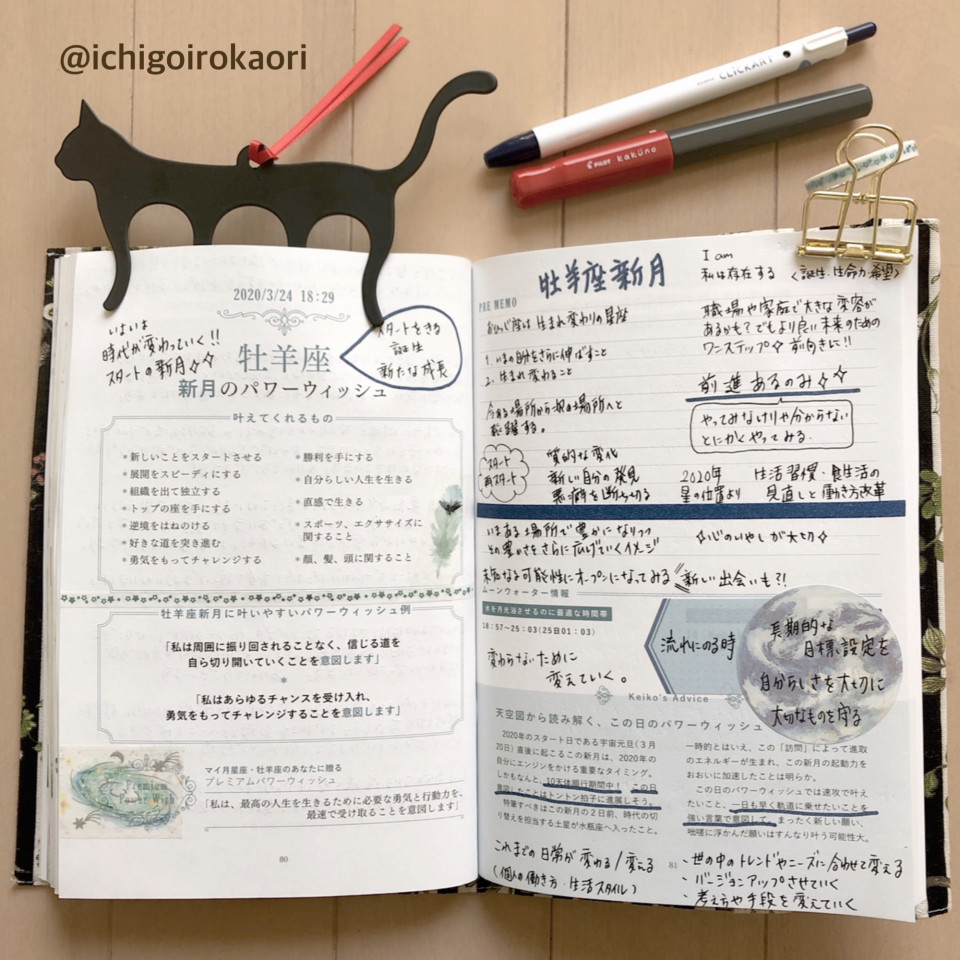 @ichigoirokaori
CLiCKART
PILOT kaküno
2020/3/24 18:29
いよいよ
時代が変わっていく!!
スタートの新月✧✧
スタートをきる
誕生
新たな成長
牡羊座
新月のパワーウィッシュ
叶えてくれるもの
*新しいことをスタートさせる
*展開をスピーディにする
*組織を出て独立する
*トップの座を手にする
*逆境をはねのける
*好きな道を突き進む
*勇気をもってチャレンジする
*勝利を手にする
*自分らしい人生を生きる
*直感で生きる
*スポーツ、エクササイズに
関すること
*顔、髪、頭に関すること
牡羊座新月に叶いやすいパワーウィッシュ例
「私は周囲に振り回されることなく、信じる道を
自ら切り開いていくことを意図します」
*
「私はあらゆるチャンスを受け入れ、
勇気をもってチャレンジすることを意図します」
Premium
Power Wish
マイ月星座・牡羊座のあなたに贈る
プレミアムパワーウィッシュ
「私は、最高の人生を生きるために必要な勇気と行動力を、
最速で受け取ることを意図します」
80
PRE MEMO
牡羊座新月
おひつじ座は生まれ変わりの星座
1. いまの自分をさらに伸ばすこと
2. 生まれ変わること
今ある場所から次の場所へと
飛躍する。
スタート
再スタート
質的な変化
新しい自分の発見
悪癖を断ち切る
I am
私は存在する 〈誕生、生命力、希望〉
職場や家庭で大きな変容が
あるかも?でもより良い未来のための
ワンステップ✧前向きに!!
前進あるのみ✧✧
やってみなけりゃ分からない
とにかくやってみる.
2020年 生活習慣・食生活の
星の位置より 見直しと働き方改革
いまある場所で豊かになりつつ
その豊かさをさらに広げていくイメージ
✧心のいやしが大切✧
未知なる可能性にオープンになってみる 新しい出会いも?!
ムーンウォーター情報
水を月光浴させるのに最適な時間帯
18:57~25:03(25日01:03)
変わらないために
変えていく。
流れにのる時
長期的な
目標設定を
自分らしさを大切に
大切なものを守る
Keiko's Advice
天空図から読み解く、この日のパワーウィッシュ
2020年のスタート日である宇宙元旦(3月
20日)直後に起こるこの新月は、2020年の
自分にエンジンをかける重要なタイミング。
しかもなんと、10天体順行期間中! この日
意図したことはトントン拍子に進展しそう。
特筆すべきはこの新月の2日前、時代の切
り替えを担当する土星が水瓶座へ入ったこと。
一時的とはいえ、この「訪問」によって進取
のエネルギーが生まれ、この新月の起動力を
おおいに加速したことは明らか。
この日のパワーウィッシュでは速攻で叶え
たいこと、一日も早く軌道に乗せたいことを
強い言葉で意図して。まったく新しい願い、
咄嗟に浮かんだ願いはすんなり叶う可能性大。
これまでの日常が変わる/変える
(個人の働き方・生活スタイル)
81
・世の中のトレンドやニーズに合わせて変える
・バージョンアップさせていく
・考え方や手段を変えていく